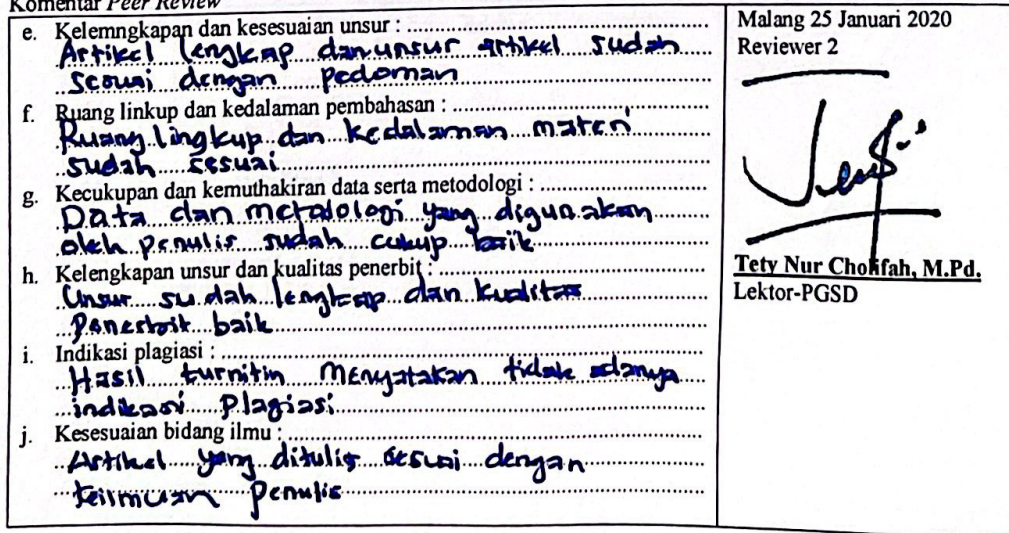 Komentar Peer Review
e. Kelemngkapan dan kesesuaian unsur :
Artikel lengkap dan unsur artikel sudah
sesuai dengan pedoman
f. Ruang linkup dan kedalaman pembahasan :
Ruang lingkup dan kedalaman materi
sudah sesuai
g. Kecukupan dan kemuthakiran data serta metodologi :
Data dan metodologi yang digunakan
oleh penulis sudah cukup baik
h. Kelengkapan unsur dan kualitas penerbit :
Unsur sudah lengkap dan kualitas
Penerbit baik
i. Indikasi plagiasi :
Hasil turnitin menyatakan tidak adanya
indikasi Plagiasi
j. Kesesuaian bidang ilmu :
Artikel yang ditulis sesuai dengan
keilmuan penulis
Malang 25 Januari 2020
Reviewer 2
Tety Nur Cholifah, M.Pd.
Lektor-PGSD